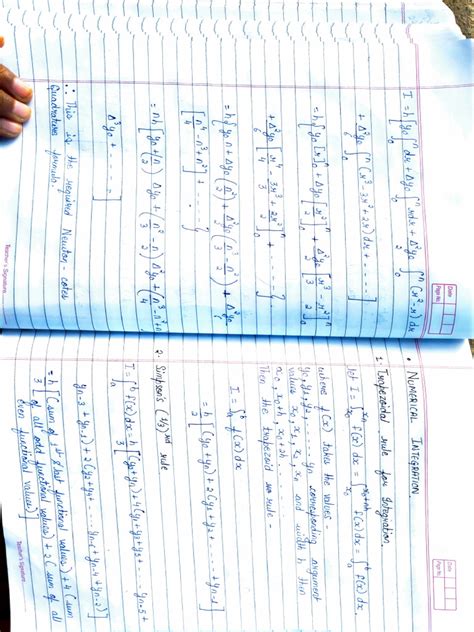 Date
Page No.
I = h[y₀ ∫₀ⁿ dx + Δy₀ ∫₀ⁿ x dx + Δ²y₀/2 ∫₀ⁿ (x²-x) dx
+ Δ³y₀ ∫₀ⁿ (x³-3x²+2x) dx + ......]
= h[y₀[x]₀ⁿ + Δy₀[x²/2]₀ⁿ + Δ²y₀/2 [x³/3 - x²/2]₀ⁿ
+ Δ³y₀ [x⁴/4 - 3x³/3 + 2x²/2]₀ⁿ + ......]
= h[y₀n + Δy₀(n²/2) + Δ²y₀/2 (n³/3 - n²/2) + Δ³y₀
[n⁴/4 - n³ + n²] + ......]
= nh[y₀ + (n/2) Δy₀ + (n²/3 - n/2) Δ²y₀ + (n³/4 - n² + n)
Δ³y₀ + ......]
∴ This is the required Newton-cotes
Quadrature formula.
Teacher's Signature
Date
Page No.
• NUMERICAL INTEGRATION
1. Trapezoidal rule for Integration
let I = ∫ f(x) dx = ∫ f(x) dx = ∫ₐᵇ f(x) dx.
where f(x) takes the values -
y₀, y₁, y₂, ..... yₙ corresponding argument
values x₀, x₁, x₂, xₙ and width h then
x₀, x₀+h, x₀+2h .....
Then the trapezoid rule -
I = ∫ₐᵇ f(x) dx
= h/2 [(y₀+yₙ) + 2(y₁+y₂+ ..... +yₙ₋₁)]
2. Simpson's (1/3)rd rule
I = ∫ₐᵇ f(x) dx = h/3 [(y₀+yₙ) + 4(y₁+y₃+ ... yₙ₋₅ +
yₙ₋₃ + yₙ₋₁) + 2(y₂+y₄+ ..... yₙ₋₆ + yₙ₋₄ + yₙ₋₂)]
= h/3 [(sum of 1st & last functional values) + 4 (sum
of all odd functional values) + 2 (sum of all
even functional values)]
Teacher's Signature